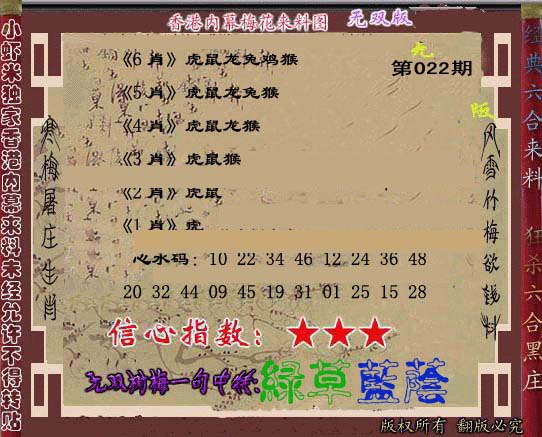 香港内幕梅花来料图 无双版
第022期
《6 肖》虎鼠龙兔鸡猴
《5 肖》虎鼠龙兔猴
《4 肖》虎鼠龙猴
《3 肖》虎鼠猴
《2 肖》虎鼠
《1 肖》虎
心水码：10 22 34 46 12 24 36 48
20 32 44 09 45 19 31 01 25 15 28
信心指数：★★★
绿草蓝荫
版权所有 翻版必究
小虾米独家香港内幕来料未经允许不得转贴
寒梅屠庄生肖
风雪竹梅欲钱料
经典六合来料 狂杀六合黑庄